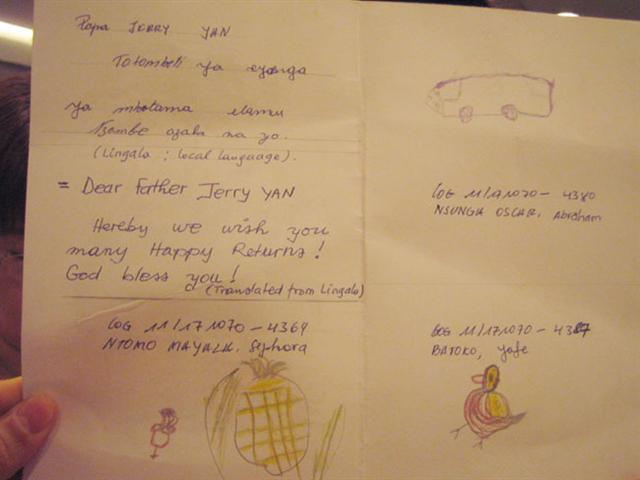 Papa JERRY YAN
Totombeli ya eyenga
ya mbotama elamu
Nzambe azala na yo.
(Lingala ; local language).
= Dear Father Jerry YAN
Hereby we wish you
many Happy Returns!
God bless you!
(Translated from Lingala)
COG 11/171070 - 4364
NTOMO MAYALA,
COG 11/171070 - 4380
NSUNGA OSCAR, Abraham
COG 11/171070 -
BATOKO,